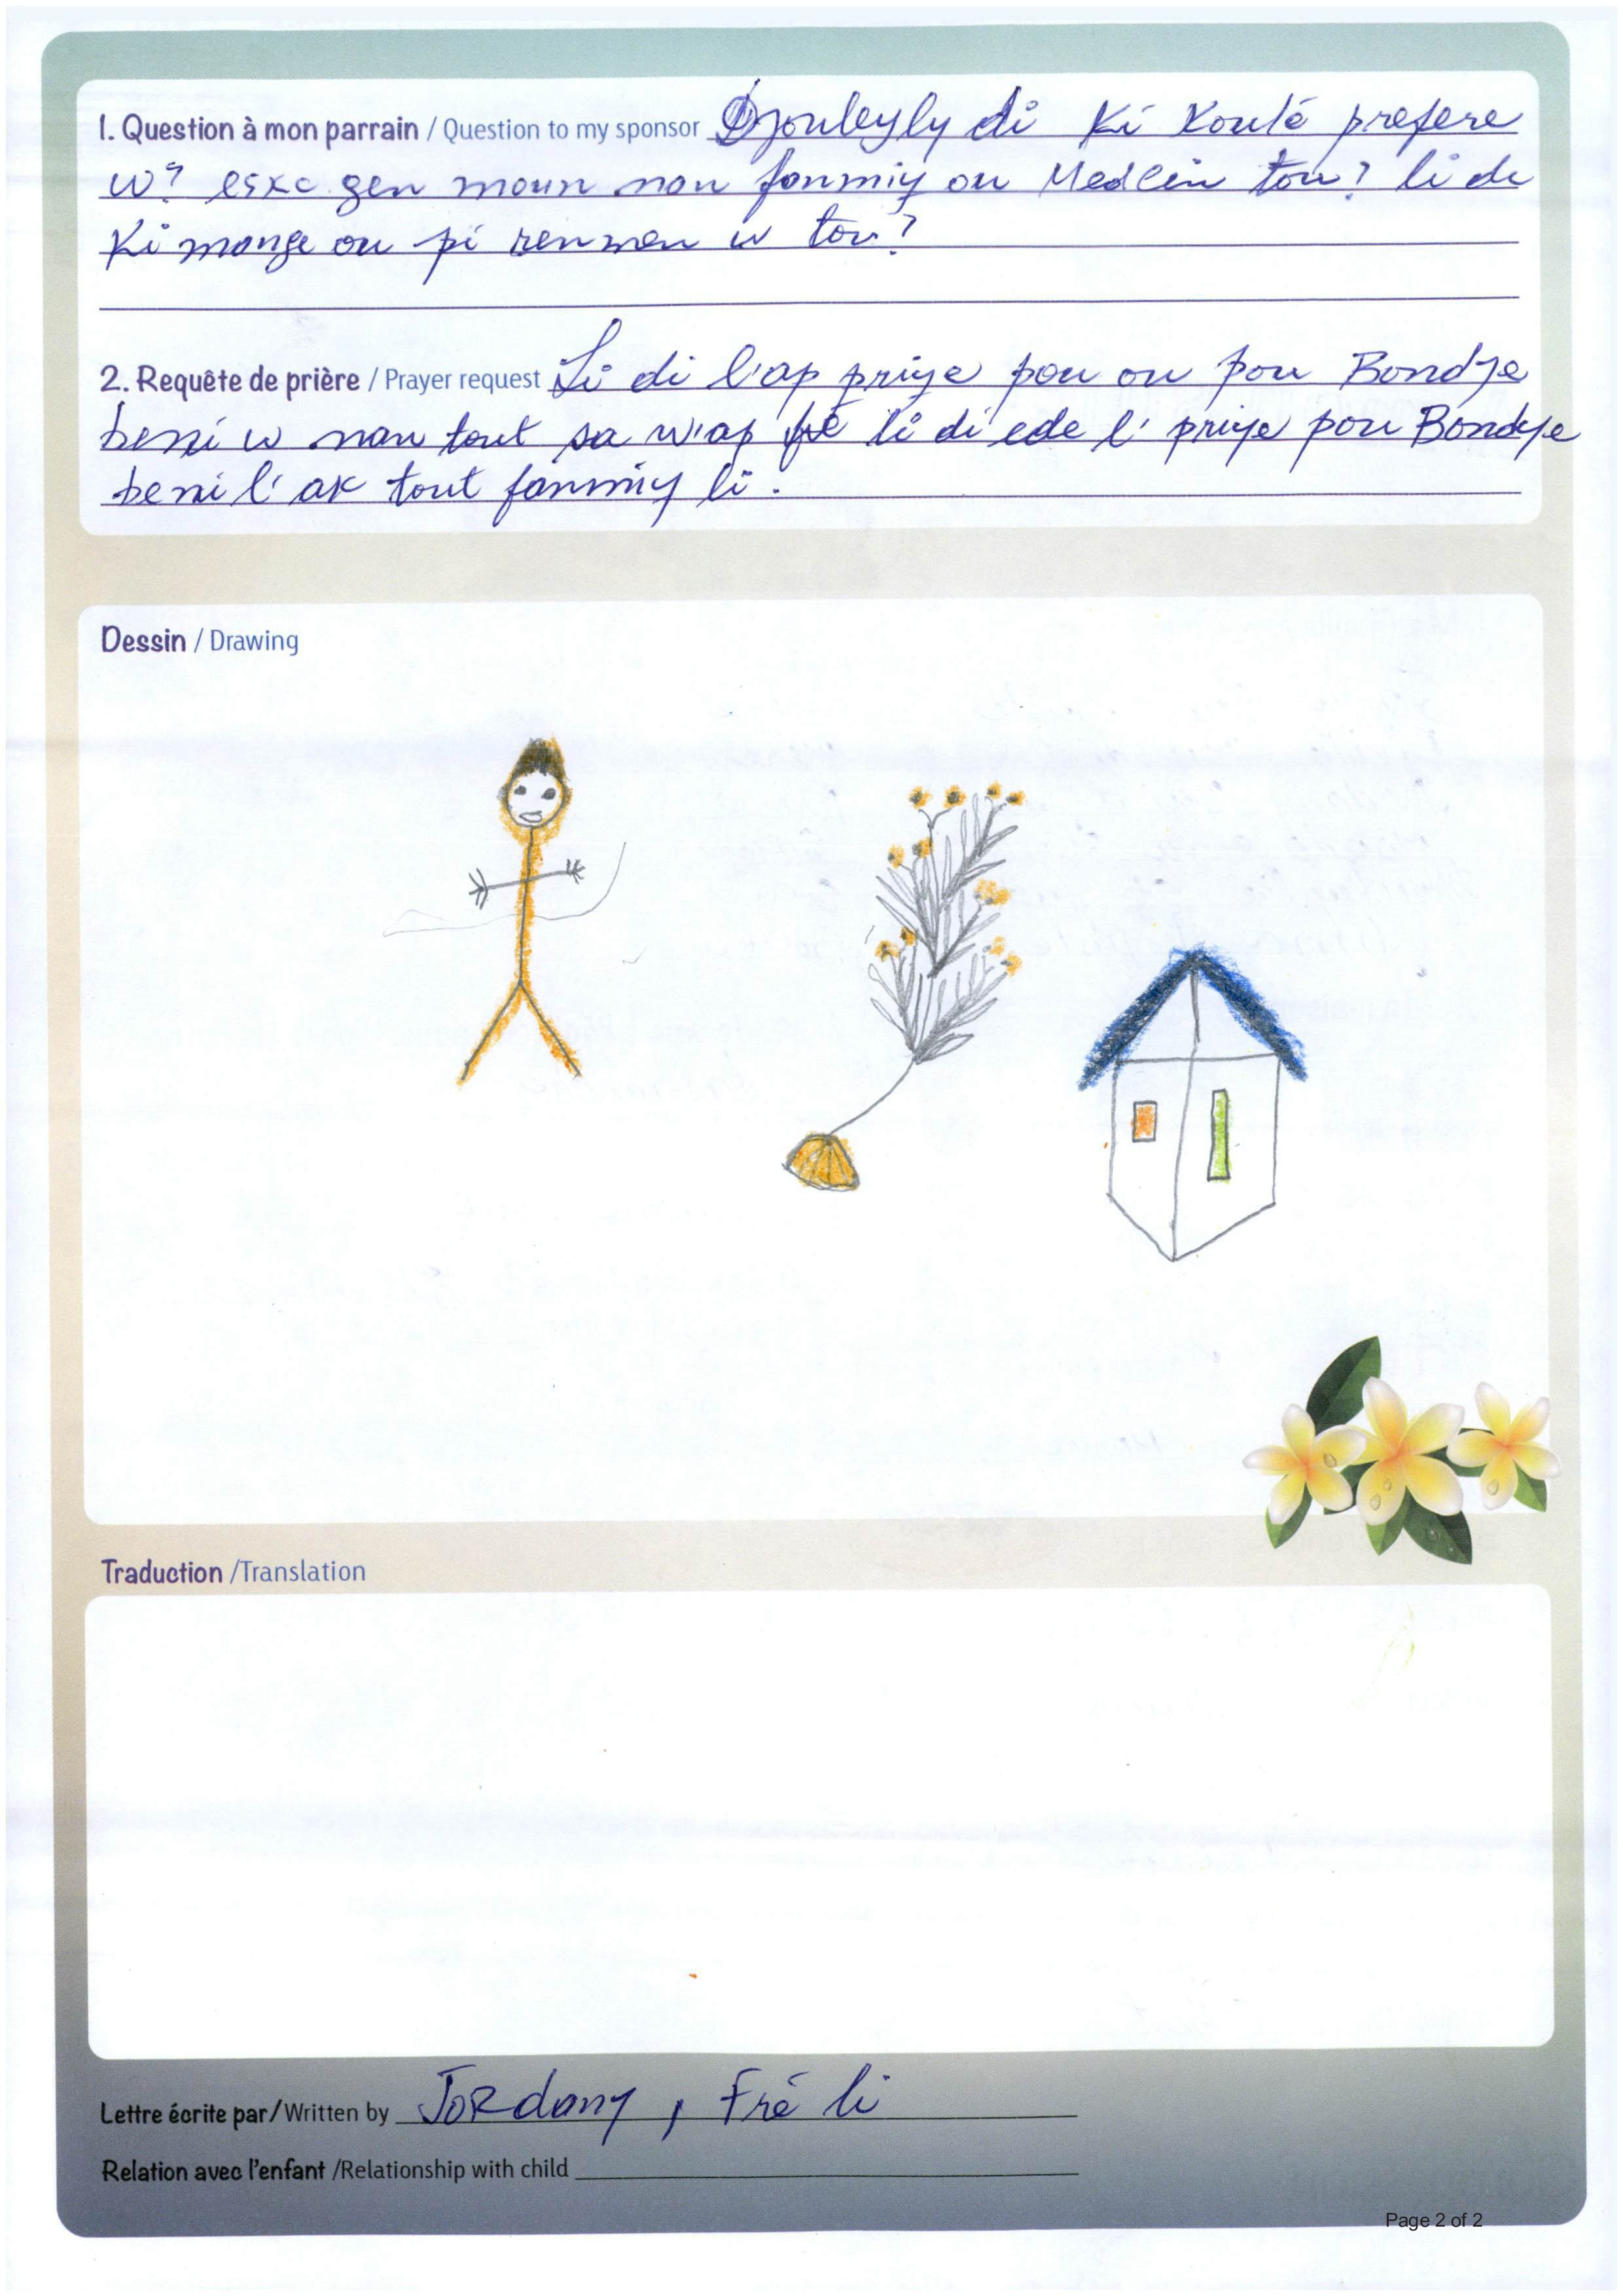 1. Question à mon parrain / Question to my sponsor Djouleyly di ki koulè prefere
w? eske gen moun nan fanmiy ou Medcin tou? li di
ki mange ou pi renmen w tou?
2. Requête de prière / Prayer request Li di l'ap priye pou ou pou Bondye
beni w nan tout sa w'ap fè li di ede l' priye pou Bondye
beni l' ak tout fanmiy li.
Dessin / Drawing
Traduction /Translation
Lettre écrite par/Written by Jordany, Frè li
Relation avec l'enfant /Relationship with child
Page 2 of 2